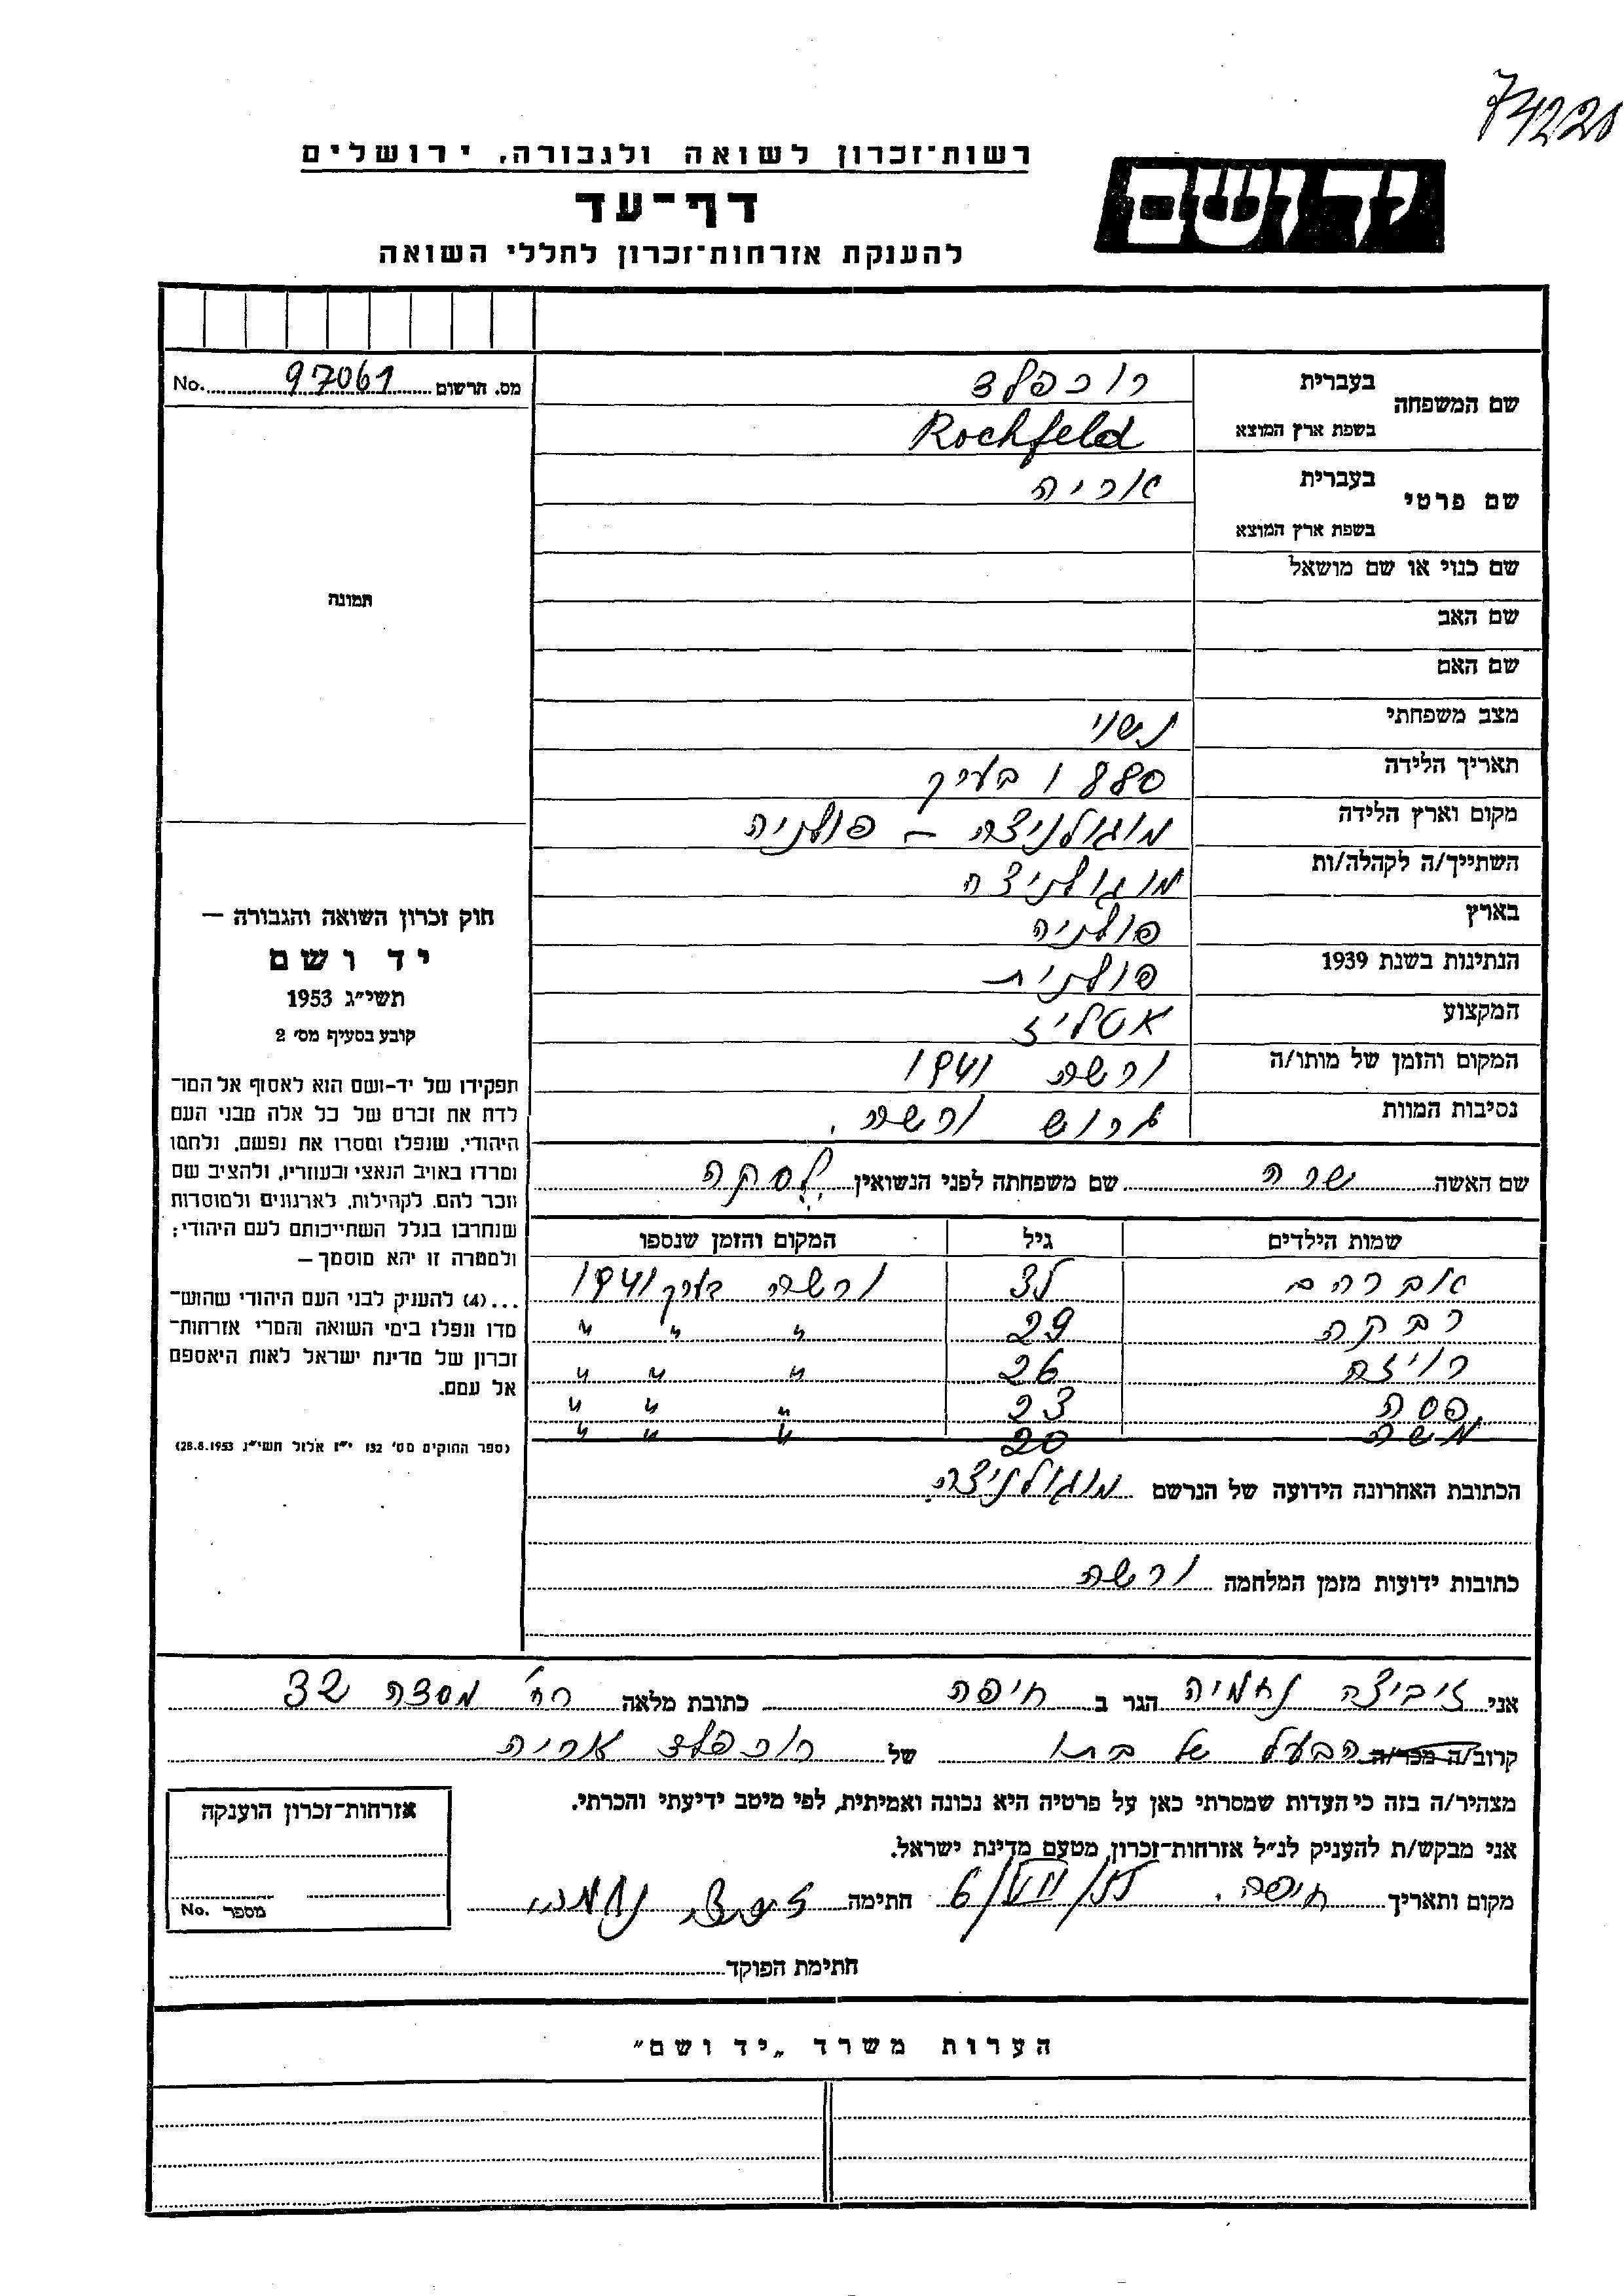 74220
יד ושם
רשות־זכרון לשואה ולגבורה, ירושלים
דף־עד
להענקת אזרחות־זכרון לחללי השואה
מס. הרשום 97061 No.
תמונה
שם המשפחה בעברית רוכפלד
בשפת ארץ המוצא Rochfeld
שם פרטי בעברית אריה
בשפת ארץ המוצא
שם כנוי או שם מושאל
שם האב
שם האם
מצב משפחתי נשוי
תאריך הלידה 1880 בערך
מקום וארץ הלידה מוגולניצה – פולניה
השתייך/ה לקהלה/ות מוגולניצה
בארץ פולניה
הנתינות בשנת 1939 פולנית
המקצוע אטליז
המקום והזמן של מותו/ה ורשה 1941
נסיבות המוות גרוש ורשה.
שם האשה שרה שם משפחתה לפני הנשואין
שמות הילדים גיל המקום והזמן שנספו
אברהם ורשה בערך 1941
רבקה 29 " " "
רויזה 26 " " "
פסה 23 " " "
משה 20 " " "
הכתובת האחרונה הידועה של הנרשם מוגולניצה
כתובות ידועות מזמן המלחמה ורשה
חוק זכרון השואה והגבורה –
יד ושם
תשי״ג 1953
קובע בסעיף מס׳ 2
תפקידו של יד־ושם הוא לאסוף אל המו־
לדת את זכרם של כל אלה מבני העם
היהודי, שנפלו ומסרו את נפשם, נלחמו
ומרדו באויב הנאצי ובעוזריו, ולהציב שם
וזכר להם, לקהילות, לארגונים ולמוסדות
שנחרבו בגלל השתייכותם לעם היהודי;
ולמטרה זו יהא מוסמך –
...(4) להעניק לבני העם היהודי שהוש־
מדו ונפלו בימי השואה והמרי אזרחות־
זכרון של מדינת ישראל לאות היאספם
אל עמם.
(ספר החוקים מס׳ 132 י״ז אלול תשי״ג 28.8.1953)
אני זיביצה נחמיה הגר ב חיפה כתובת מלאה רח׳ מסדה 32
קרוב/ה מכר/ה הבעל של בתו של רוכפלד אריה
מצהיר/ה בזה כי העדות שמסרתי כאן על פרטיה היא נכונה ואמיתית, לפי מיטב ידיעתי והכרתי.
אני מבקש/ת להעניק לנ״ל אזרחות־זכרון מטעם מדינת ישראל.
מקום ותאריך חיפה. חתימה
אזרחות־זכרון הוענקה
מספר No.
חתימת הפוקד
הערות משרד „יד ושם״